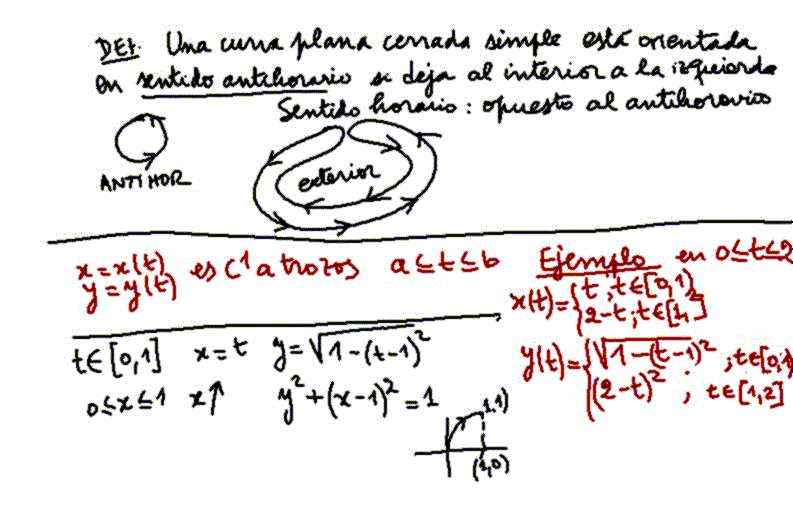 DEF. Una curva plana cerrada simple está orientada
en sentido antihorario si deja al interior a la izquierda
Sentido horario : opuesto al antihorario
ANTIHOR
exterior
x = x(t)
y = y(t)
es C¹ a trozos a ≤ t ≤ b
Ejemplo en 0 ≤ t ≤ 2
x(t) = { t , t ∈ [0,1)
2-t ; t ∈ [1,2]
t ∈ [0,1] x = t y = √(1-(t-1)²)
0 ≤ x ≤ 1 x↑ y² + (x-1)² = 1
y(t) = { √(1-(t-1)²) ; t ∈ [0,1)
(2-t)² , t ∈ [1,2]
1,1)
(1,0)